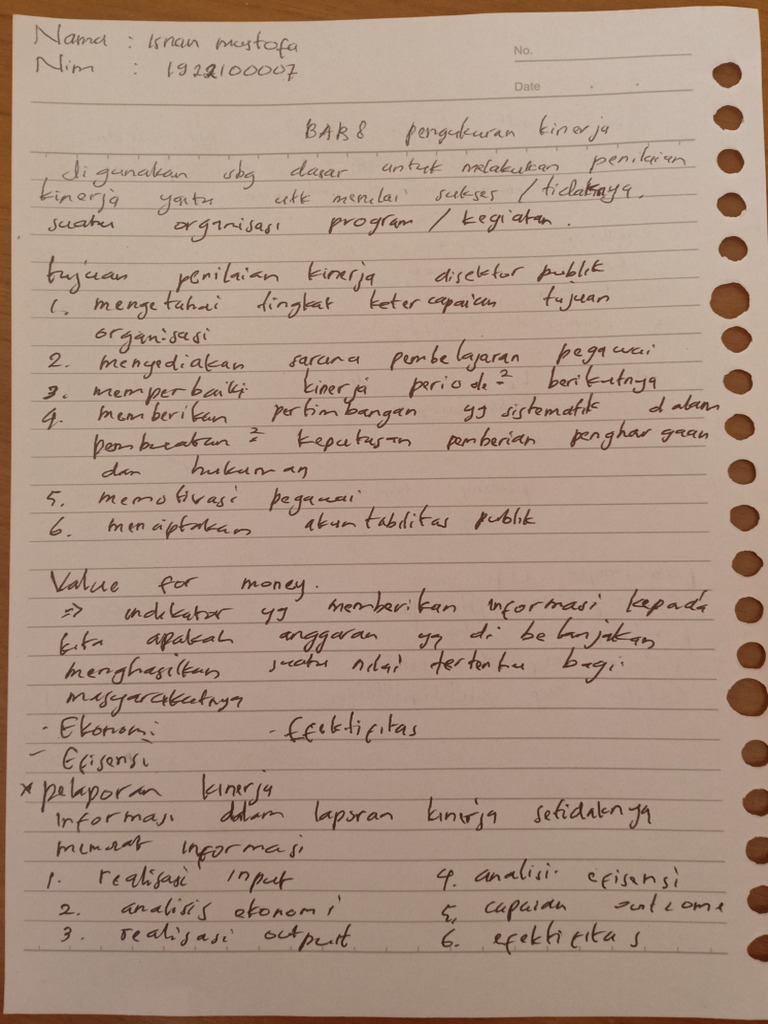 Nama : Isnan mustofa
No.
Nim : 1922100007
Date
BAB 8 pengukuran kinerja
digunakan sbg dasar untuk melakukan penilaian
kinerja yaitu utk menilai sukses / tidaknya
suatu organisasi program / kegiatan.
tujuan penilaian kinerja disektor publik
1. mengetahui tingkat ketercapaian tujuan
organisasi
2. menyediakan sarana pembelajaran pegawai
3. memperbaiki kinerja periode² berikutnya
4. memberikan pertimbangan yg sistematik dalam
pembuatan² keputusan pemberian penghargaan
dan hukuman
5. memotivasi pegawai
6. menciptakan akuntabilitas publik
Value for money.
=> indikator yg memberikan informasi kepada
kita apakah anggaran yg di belanjakan
menghasilkan suatu nilai tertentu bagi
masyarakatnya
- Ekonomi - Efektifitas
- Efisensi
* pelaporan kinerja
informasi dalam laporan kinerja setidaknya
memuat informasi
1. realisasi input 4. analisi efisensi
2. analisis ekonomi 5. capaian outcome
3. realisasi output 6. efektifitas